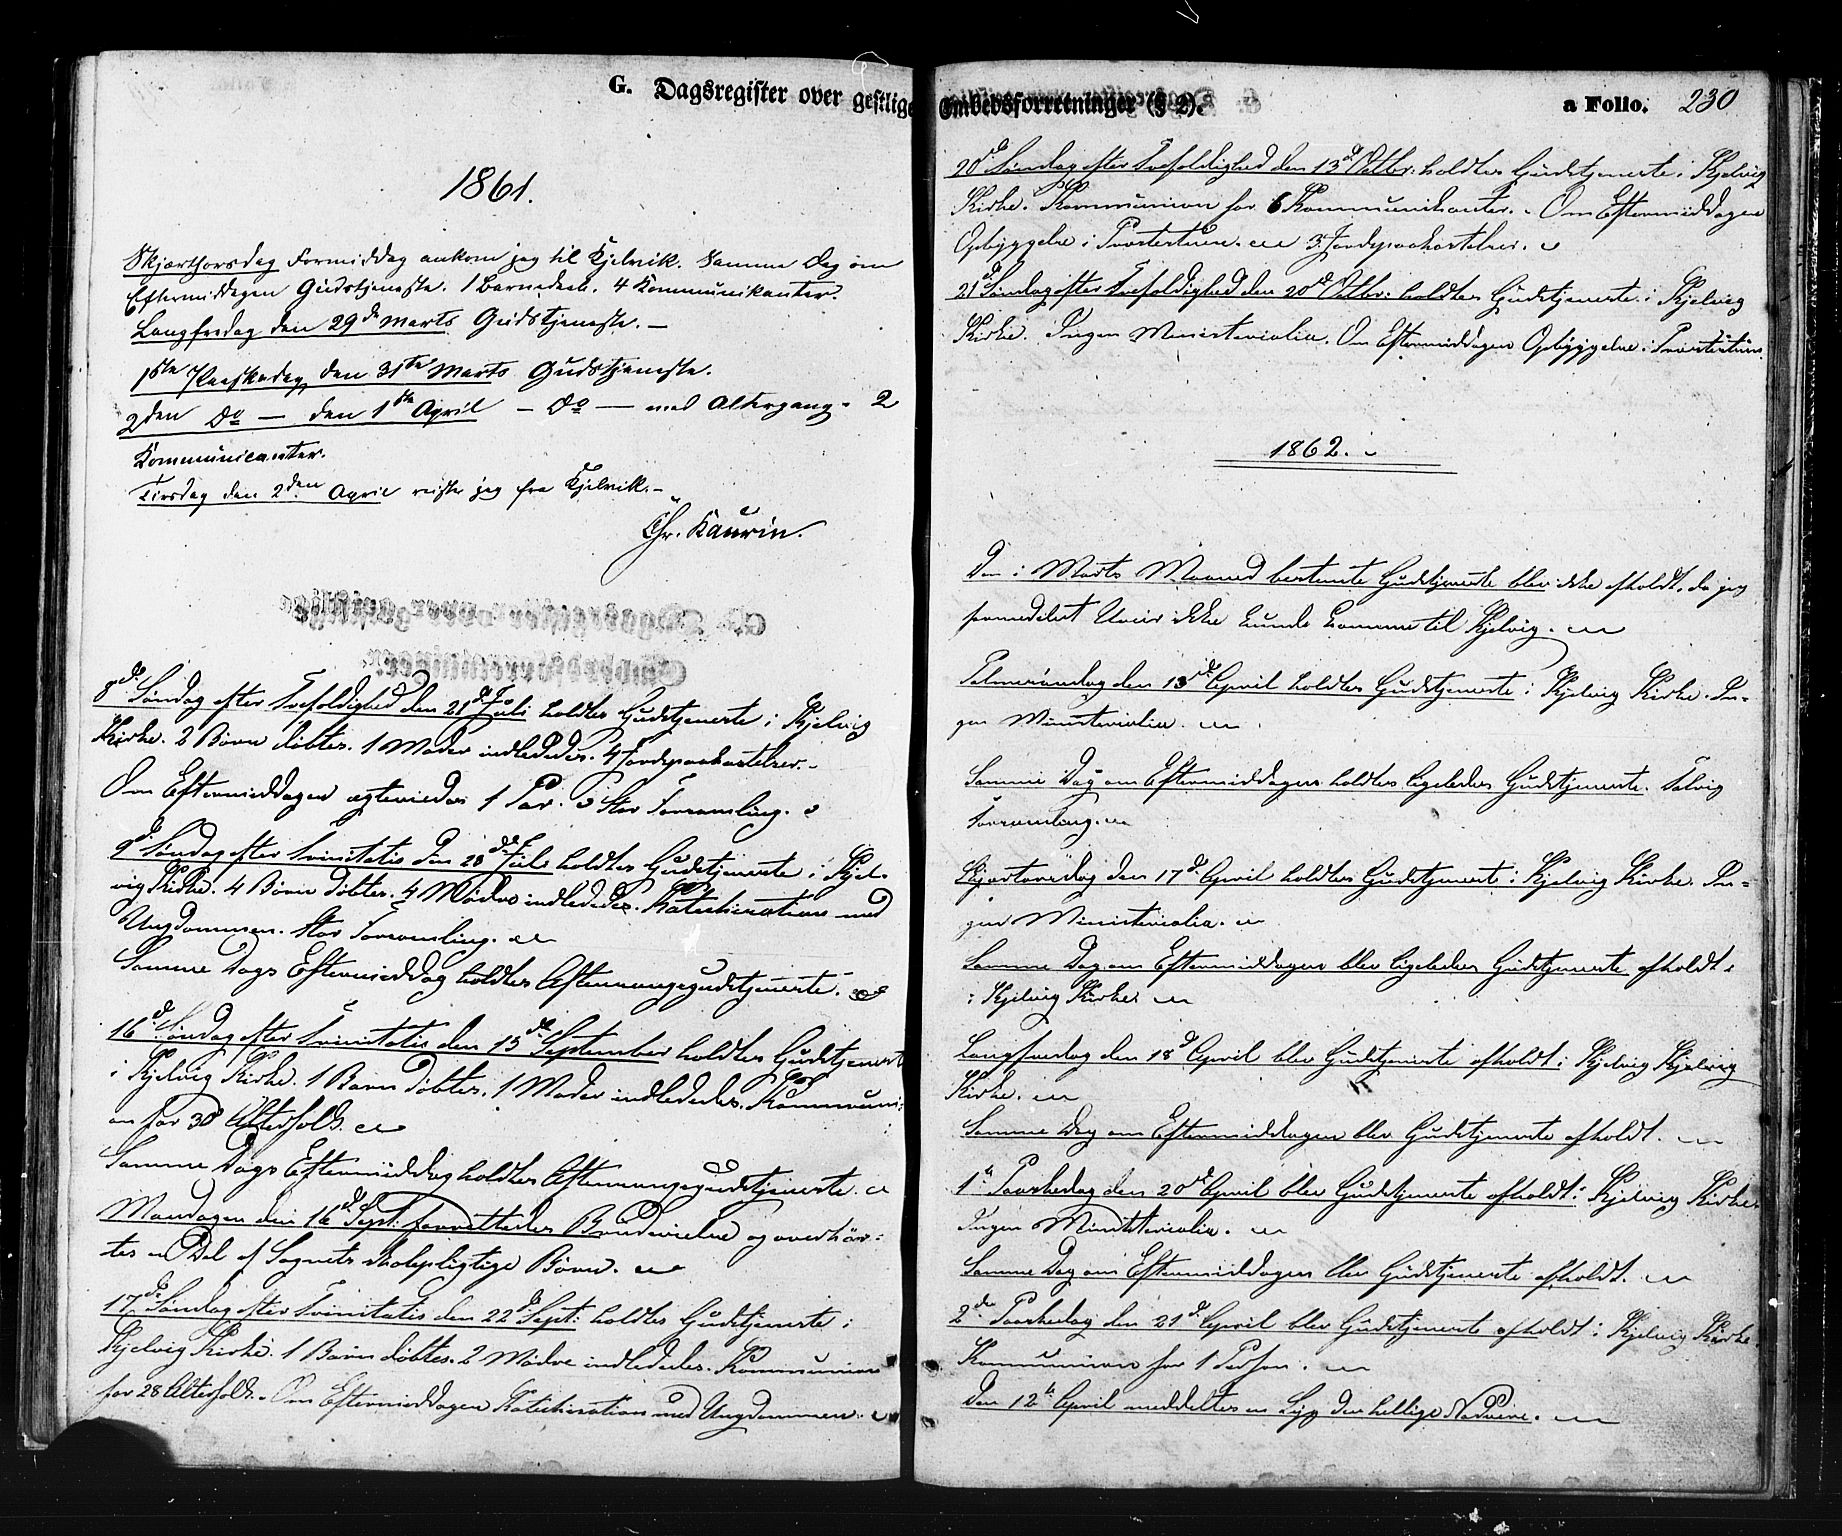 G. Dagsregister over geistlige Embedsforretninger (§ 2).
a Folio. 230
1861.
Skjærthorsdag Formiddag ankom jeg til Kjelvik. Samme Dag om
Eftermiddagen Gudstjeneste. 1 Barnedaab. 4 Kommunikanter.
Langfredag den 29de Marts Gudstjeneste. —
1ste Paaskedag den 31te Marts Gudstjeneste.
2den Do — den 1ste April — Do — med Altergang - 2
Kommunicanter.
Tirsdag den 2den April reiste jeg fra Kjelvik. —
Chr. Kaurin.
8de Søndag efter Trefoldighed den 21de Juli holdtes Gudstjeneste i Kjelvig
Kirke. 2 Børn døbtes. 1 Moder indlededes. 4 Jordpaakastelser. -
Om Eftermiddagen ægteviedes 1 Par. Stor Forsamling.
9de Søndag efter Trinitatis den 28de Juli holdtes Gudstjeneste i Kjel-
vig Kirke. 4 Børn døbtes. 4 Mødre indlededes. Katechisation med
Ungdommen. Stor Forsamling.
Samme Dags Eftermiddag holdtes Aftensangsgudstjeneste.
16de Søndag efter Trinitatis den 15de September holdtes Gudstjenest
i Kjelvig Kirke. 1 Barn døbtes. 1 Moder indlededes. Kommuni-
on for 38 Altersfolk.
Samme Dags Eftermiddag holdtes Aftensangsgudstjeneste.
Mandagen den 16de Sept: forrettedes Brudevielse og overhør-
tes en Del af Sognets skolepligtige Børn.
17de Søndag efter Trinitatis den 22de Sept: holdtes Gudstjeneste i
Kjelvig Kirke. 1 Barn døbtes. 2 Mødre indlededes. Kommunion
for 28 Altersfolk. - Om Eftermiddagen Katechisation med Ungdommen.
20de Søndag efter Trefoldighed den 13de Octbr. holdtes Gudstjeneste i Kjelvig
Kirke. Kommunion for 6 Kommunikanter. - Om Eftermiddagen
Opbyggelse i Præstestuen. 3 Jordpaakastelser.
21de Søndag efter Trefoldighed den 20de Octbr: holdtes Gudstjeneste i Kjelvig
Kirke. Ingen Ministerialia. Om Eftermiddagen Opbyggelse i Præstestuen
1862.
Den i Marts Maaned bestemte Gudstjeneste blev ikke afholdt, da jeg
formedelst Uveir ikke kunde komme til Kjelvig.
Palmesøndag den 13de April holdtes Gudstjeneste i Kjelvig Kirke. In-
gen Ministerialia.
Samme Dag om Eftermiddagen holdtes ligeledes Gudstjeneste. Talrig
Forsamling.
Skjærtorsdag den 17de April holdtes Gudstjenest i Kjelvig Kirke. In-
gen Ministerialia.
Samme Dag om Eftermiddagen blev ligeledes Gudstjeneste afholdt i
i Kjelvig Kirke
Langfredag den 18de April blev Gudstjeneste afholdt i Kjelvig Kjelvig
Kirke.
Samme Dag om Eftermiddagen blev Gudstjeneste afholdt.
1ste Paaskedag den 20de April blev Gudstjeneste afholdt i Kjelvig Kirke.
Ingen Ministerialia.
Samme Dag om Eftermiddagen blev Gudstjeneste afholdt.
2den Paaskedag den 21de April blev Gudstjeneste afholdt i Kjelvig Kirke.
Kommunion for 1 Person.
Den 12te April meddeltes en Syg den hellige Nadvere.